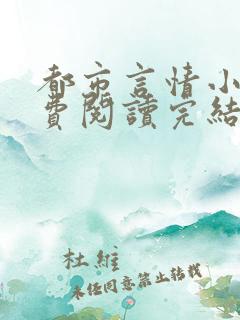 都市言情小
費閱讀完結
杜維
未任同意禁止转载